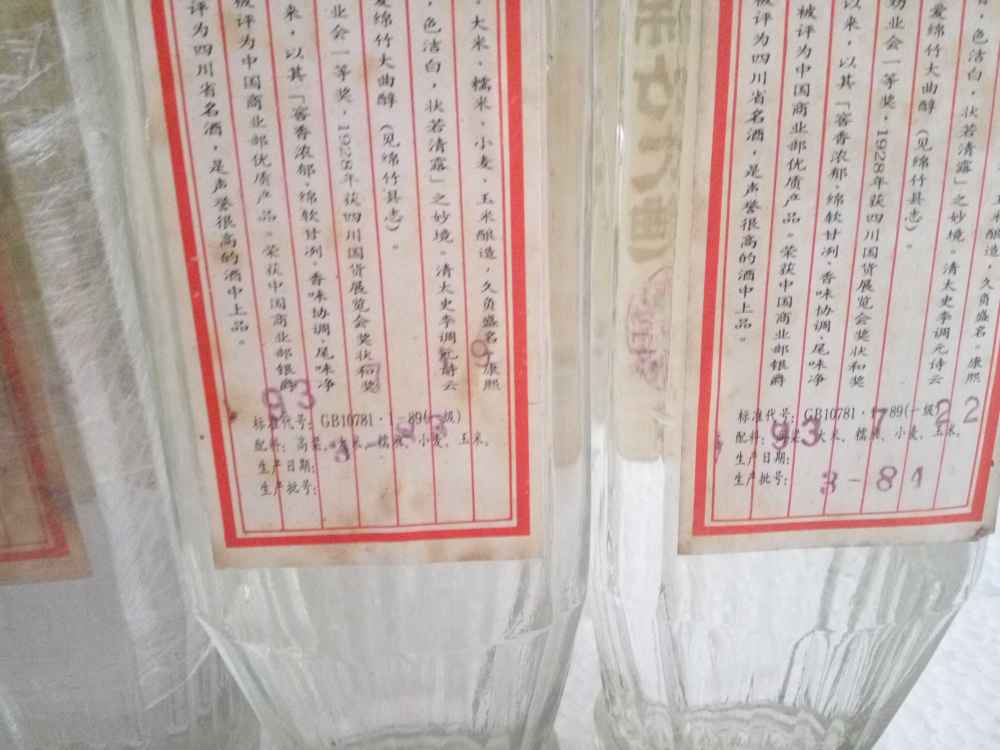 大米、糯米、小麦、玉米酿造，久负盛名。康熙
，色洁白，状若清露」之妙境。清太史李调元诗云
爱绵竹大曲醇（见绵竹县志）。
业会一等奖，1928年获四川国货展览会奖状和奖
来，以其「窖香浓郁、绵软甘冽、香味协调、尾味净
被评为中国商业部优质产品。荣获中国商业部银爵
评为四川省名酒，是声誉很高的酒中上品。
93
9
标准代号：GB10781·1-89(一级)
配料：高粱、大米、糯米、小麦、玉米。
生产日期：
生产批号：
，色洁白，状若清露」之妙境。清太史李调元诗云
玉米酿造，久负盛名。康熙
爱绵竹大曲醇（见绵竹县志）。
劝业会一等奖，1928年获四川国货展览会奖状和奖
以来，以其「窖香浓郁、绵软甘冽、香味协调、尾味净
被评为中国商业部优质产品。荣获中国商业部银爵
被评为四川省名酒，是声誉很高的酒中上品。
标准代号：GB10781·1-89(一级)
配料：高粱、大米、糯米、小麦、玉米。
生产日期：
生产批号：
93 7 22
3-81
大曲